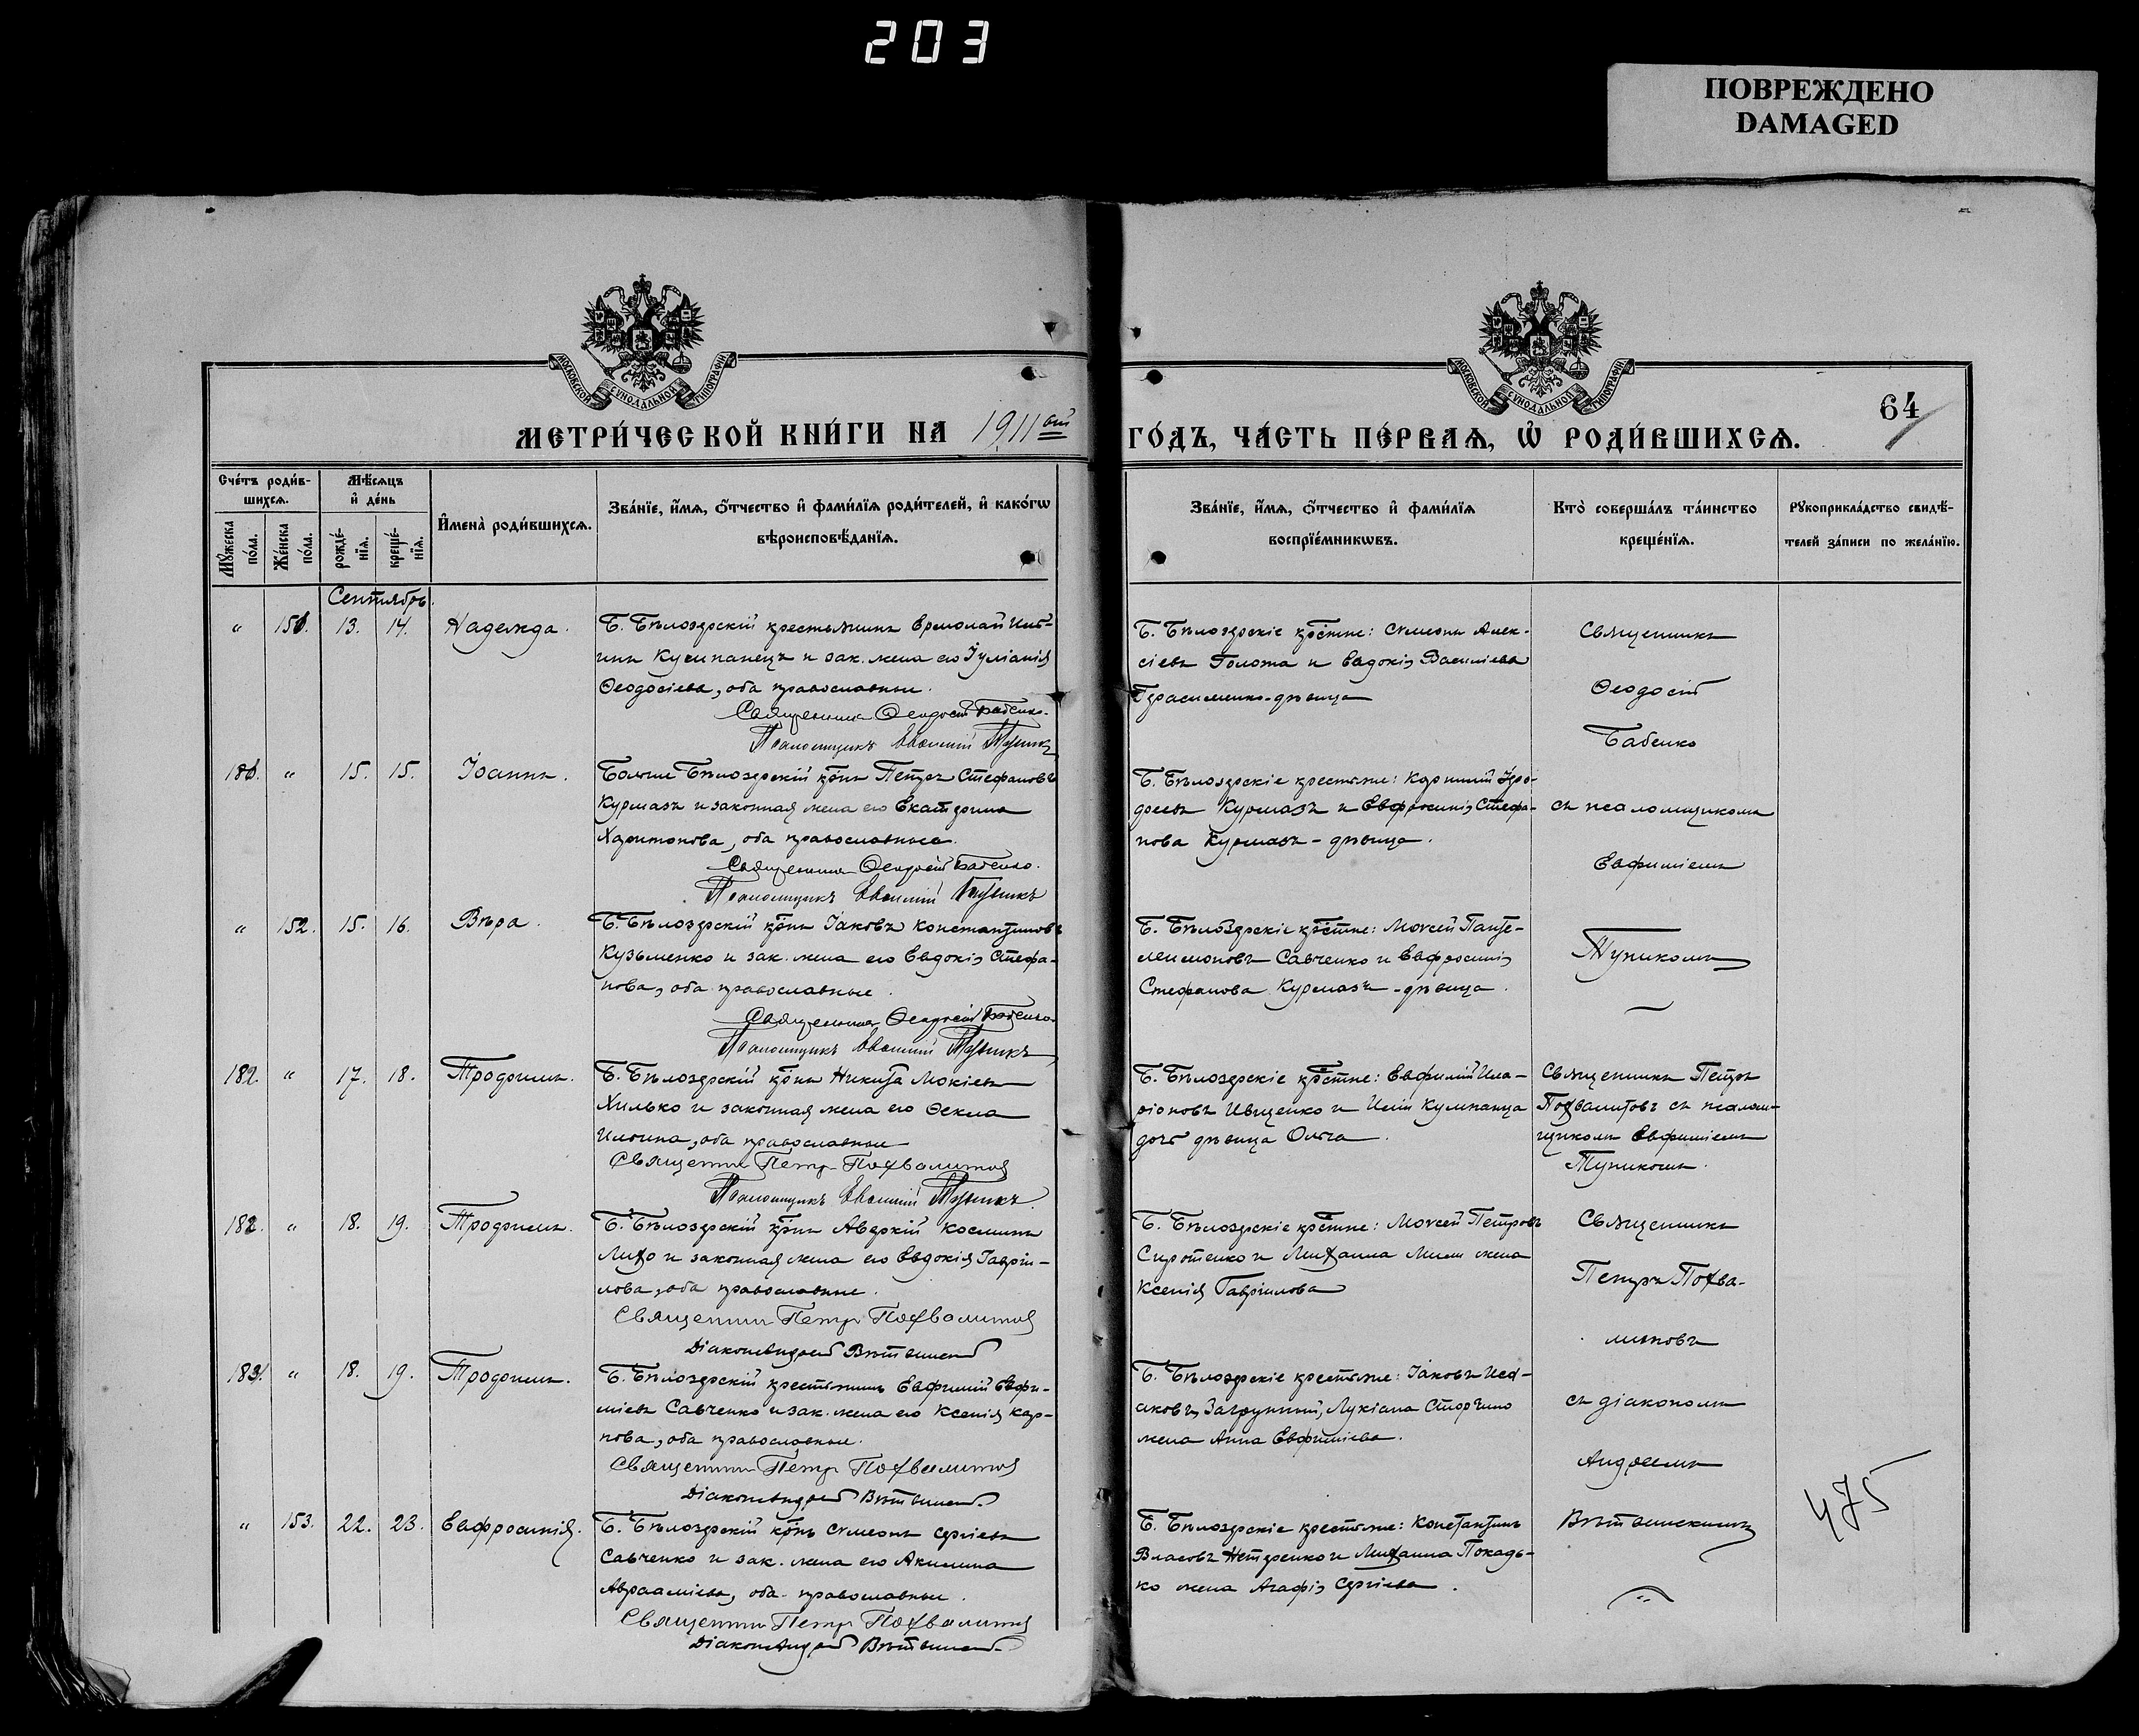 203
ПОВРЕЖДЕНО
DAMAGED
МОСКОВСКОЙ СѴНОДАЛЬНОЙ ТИПОГРАФІИ
МОСКОВСКОЙ СѴНОДАЛЬНОЙ ТИПОГРАФІИ
64
МЕТРИ́ЧЕСКОЙ КНИ́ГИ НА 1911ый ГО́ДЪ, ЧА́СТЬ ПЕ́РВАѦ, Ѡ҆ РОДИ́ВШИХСѦ.
Сче́тъ роди́в-
шихсѧ.
Мꙋ́жеска по́ла.
Же́нска по́ла.
Мѣ́сѧцъ
и҆ де́нь
рожде́-
нїѧ.
креще́-
нїѧ.
И҆мена̀ роди́вшихсѧ.
Зва́нїе, и҆́мѧ, ѻ҆́тчество и҆ фами́лїѧ роди́телей, и҆ како́гѡ
вѣроисповѣ́данїѧ.
Зва́нїе, и҆́мѧ, ѻ҆́тчество и҆ фами́лїѧ
воспрїе́мникѡвъ.
Кто̀ соверша́лъ та́инство
креще́нїѧ.
Рꙋкоприкла́дство свидѣ́-
телей за́писи по жела́нїю.
Сентябрь.
" 151. 13. 14. Надежда.
Б. Бѣлозерскій крестьянинъ Ермолай Иль-
инъ Кущпанецъ и зак. жена его Іуліанія
Ѳеодосіева, оба православные.
Священникъ Ѳеодосій Бабенко.
Псаломщикъ Евфимій Тупикъ
Б. Бѣлозерскіе крестне: Симеонъ Алек-
сіевъ Голота и Евдокія Василіева
Герасименко-дѣвица
Священникъ
Ѳеодосій
Бабенко
181. " 15. 15. Іоаннъ.
Больше Бѣлозерскій крнъ Петръ Стефановъ
Курмазъ и законная жена его Екатерина
Харитонова, оба православные.
Священникъ Ѳеодосій Бабенко.
Псаломщикъ Евфимій Тупикъ
Б. Бѣлозерскіе крестьяне: Корнилій
Курмазъ и Евфросинія Стефа-
нова Курмазъ - дѣвица.
съ псаломщикомъ
Евфиміемъ
" 152. 15. 16. Вѣра.
Б. Бѣлозерскій крнъ Іаковъ Константиновъ
Кузьменко и зак. жена его Евдокія Стефа-
нова, оба православные.
Священникъ Ѳеодосій Бабенко.
Псаломщикъ Евфимій Тупикъ
Б. Бѣлозерскіе крестне: Моѵсей Панте-
леимоновъ Савченко и Евфросинія
Стефанова Курмазъ - дѣвица.
Тупикомъ
182. " 17. 18. Трофимъ.
Б. Бѣлозерскій крнъ Никита Мокіевъ
Хилько и законная жена его Ѳекла
Ильина, оба православные
Священникъ Петръ Похвалитовъ
Псаломщикъ Евфимій Тупикъ.
Б. Бѣлозерскіе крестне: Евфимій Ила-
ріоновъ Ивщенко и Иліи
дочь дѣвица Ольга.
Священникъ Петръ
Похвалитовъ съ псалом-
щикомъ Евфиміемъ
Тупикомъ.
182. " 18. 19. Трофимъ.
Б. Бѣлозерскій крнъ Аверкій Косминъ
Лихо и законная жена его Евдокія Гаврі-
лова, оба православные.
Священникъ Петръ Похвалитовъ
Діаконъ Андрей
Б. Бѣлозерскіе крестне: Моѵсей Петровъ
Сиротенко и Михаила жена
Ксенія Гавріилова
Священникъ
Петръ Похва-
литовъ
183. " 18. 19. Трофимъ.
Б. Бѣлозерскій крестьянинъ Евфимій Евфи-
міевъ Савченко и зак. жена его Ксенія Кар-
пова, оба православные.
Священникъ Петръ Похвалитовъ
Діаконъ Андрей
Б. Бѣлозерскіе крестьяне: Іаковъ Иса-
аковъ Загрунный, Лукіана
жена Анна Евфиміева.
съ діакономъ
Андреемъ
475
" 153. 22. 23. Евфросинія.
Б. Бѣлозерскій крнъ Симеонъ Сергіевъ
Савченко и зак. жена его Акилина
Авраамiева, оба православные.
Священникъ Петръ Похвалитовъ
Діаконъ Андрей
Б. Бѣлозерскіе крестьяне: Константинъ
Власовъ Нетренко и Михаила Покадь-
ко жена Агафія Сергіева.